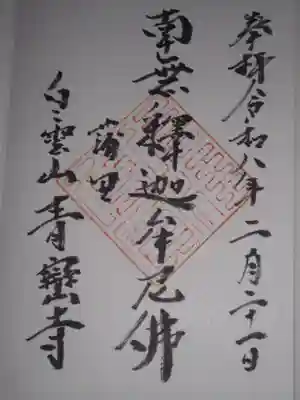 奉拝令和八年二月二十一日
南無釋迦牟尼佛
蒲里
白雲山青巒寺